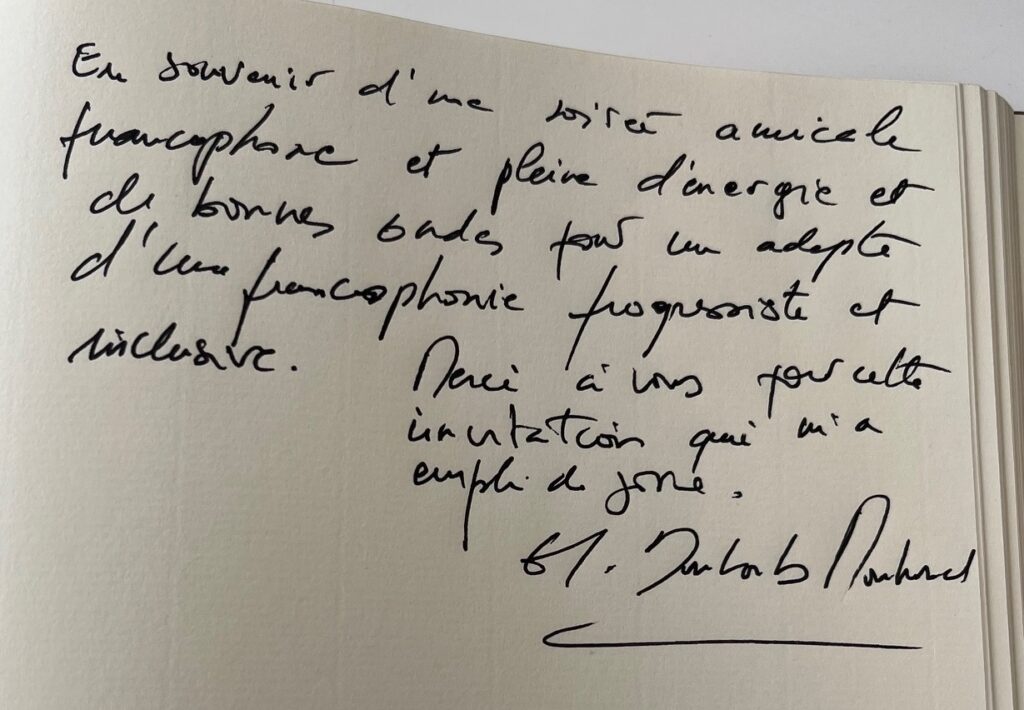 En souvenir d'une soirée amicale
francophone et pleine d'énergie et
de bonnes ondes pour un adepte
d'une francophonie progressiste et
inclusive.
Merci à vous pour cette
invitation qui m'a
empli de joie.